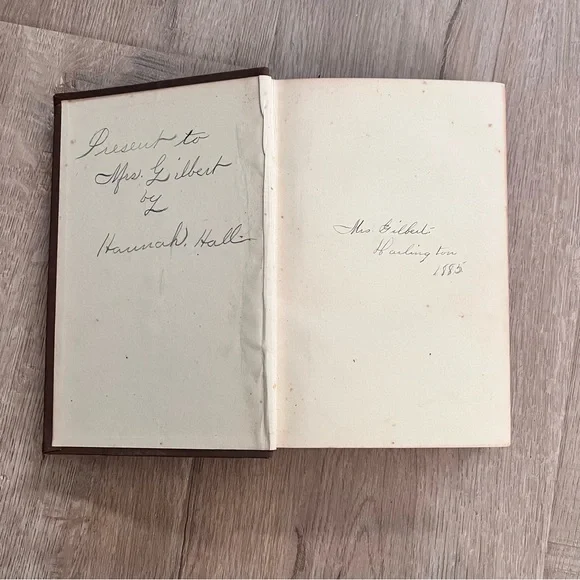 Present to
Mrs. Gilbert
by
Hannah. Hall
Mrs Gilbert
Harlington
1885